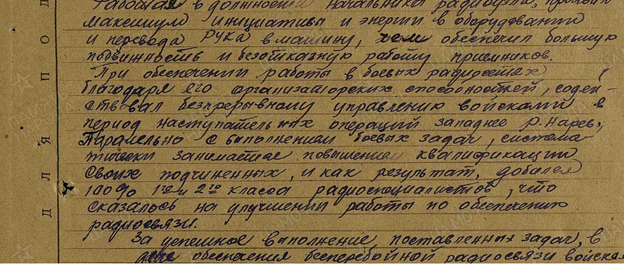 Работая в должности начальника радиоузла, проявил
максимум инициативы и энергии в оборудовании
и перевода РУКа в машину, чем обеспечил большую
подвижность и безотказную работу приемников.
При обеспечении работы в боевых радиосетях,
благодаря его организаторских способностей, содей-
ствовал безпрерывному управлению войсками в
период наступательных операций западнее р. Нарев.
Паралельно с выполнением боевых задач, система-
тически занимается повышением квалификации
своих подчиненных, и как результат, добился
100% 1го и 2го класса радиоспециалистов, что
сказалось на улучшении работы по обеспечению
радиосвязи.
За успешное выполнение поставленных задач, в
обеспечения бесперебойной радиосвязи войска
Д Л Я П О Д